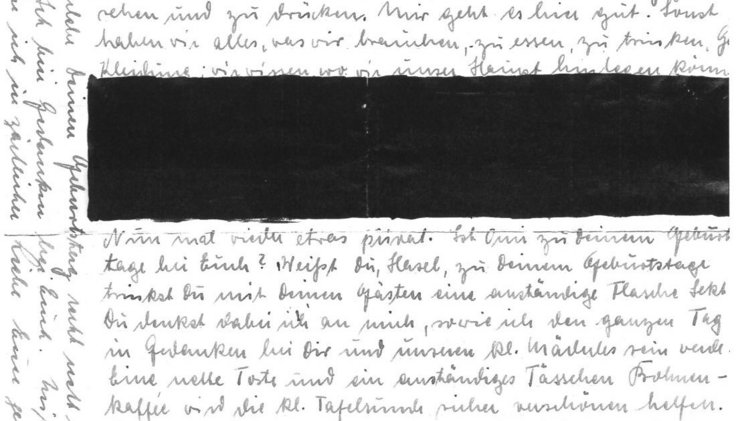 und zu drücken. Mir geht es hier gut. Sonst
haben wir alles, was wir brauchen, zu essen, zu trinken,
Kleidung, wir wissen wo wir unser Haupt hinlegen könn
Nun mal wieder etwas privat. Ist Omi zu Deinem Geburts
tage bei Euch? Weißt Du, Hasel, zu Deinem Geburtstage
trinkst Du mit Deinen Gästen eine anständige Flasche Sekt
Du denkst dabei an mich, sowie ich den ganzen Tag
in Gedanken bei Dir und unseren kl. Mädules sein werde.
Eine nette Torte und ein anständiges Tässchen Bohnen-
kaffee wird die kl. Tafelrunde sicher verschönen helfen.
Deinen Geburtstag recht nett
Ich bin Gedanken bei Euch.
ich in zärtlicher Liebe